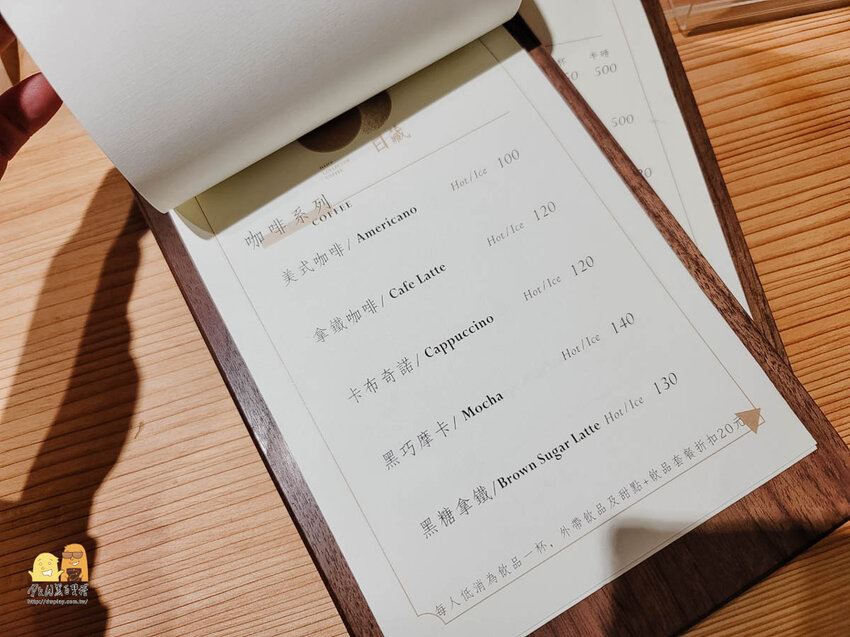 日藏
咖啡系列
COFFEE
美式咖啡/Americano Hot/Ice 100
拿鐵咖啡/Cafe Latte Hot/Ice 120
卡布奇諾/Cappuccino Hot/Ice 120
黑巧摩卡/Mocha Hot/Ice 140
黑糖拿鐵/Brown Sugar Latte Hot/Ice 130
每人低消為飲品一杯，外帶飲品及甜點+飲品套餐折扣20元
杯 半磅
500
500
http://dwplay.com.tw/